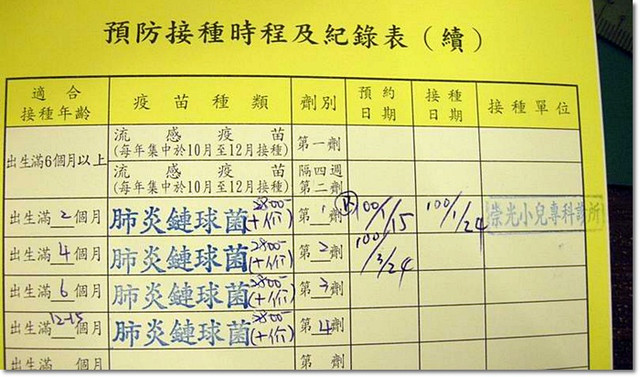 預防接種時程及紀錄表（續）
適合接種年齡 疫苗種類 劑別 預約日期 接種日期 接種單位
出生滿6個月以上 流感疫苗 (每年集中於10月至12月接種) 第一劑
流感疫苗 (每年集中於10月至12月接種) 隔四週第二劑
出生滿2個月 肺炎鏈球菌 2800 第1劑 100/1/15 100/1/24 崇光小兒專科診所
出生滿4個月 肺炎鏈球菌 2800 第2劑 100/3/24
出生滿6個月 肺炎鏈球菌 2800 第3劑
出生滿12-15個月 肺炎鏈球菌 2800 第4劑
出生滿 個月 第 劑